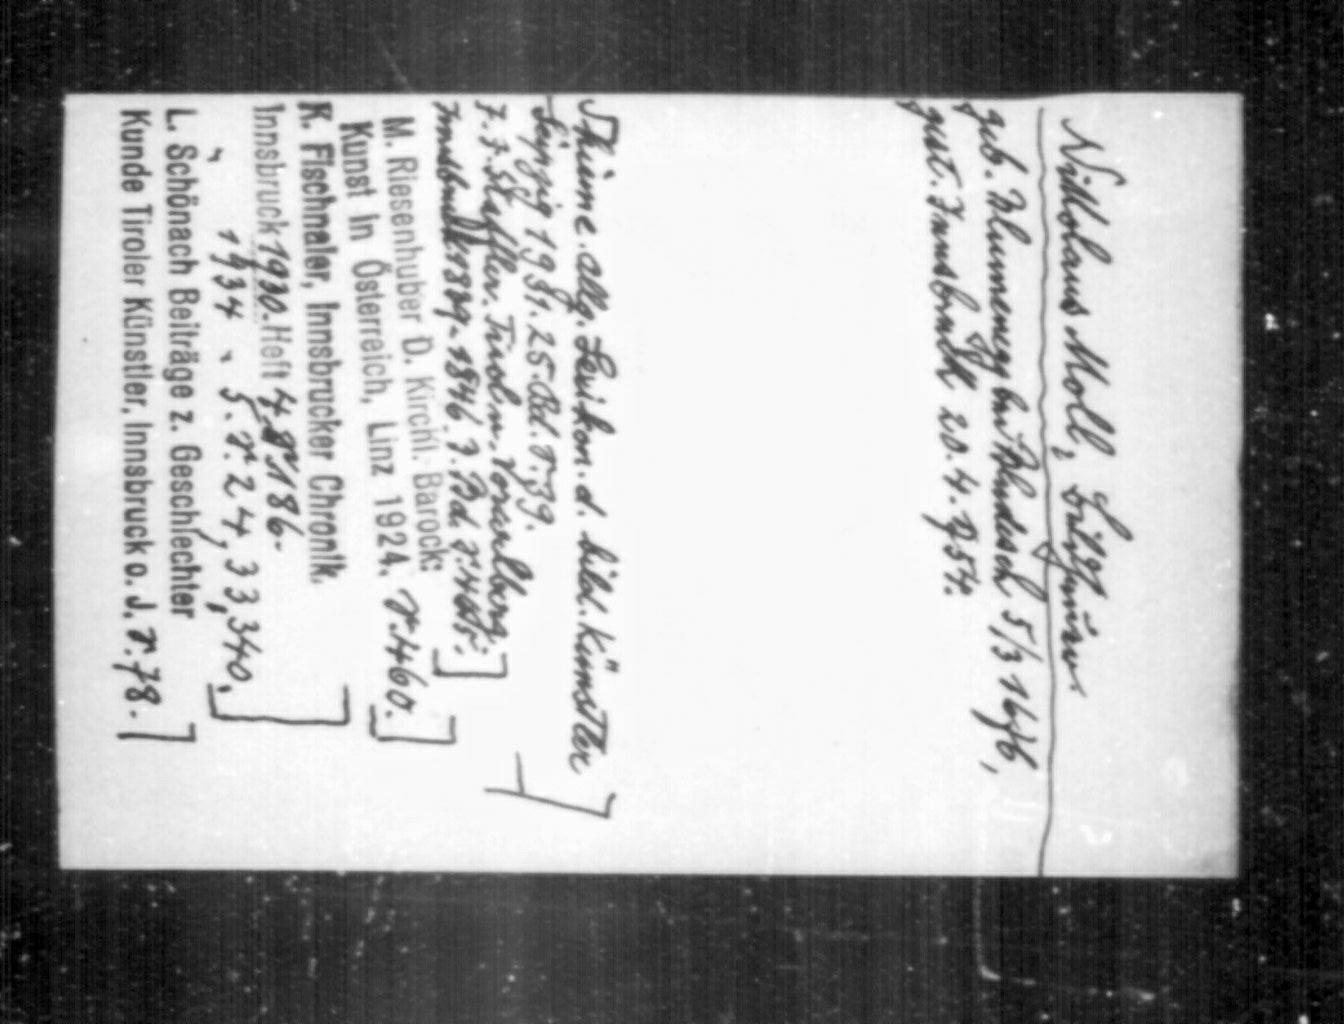 Nikolaus Moll, Bildhauer
geb. Blumenegg bei Bludesch 5/3 1676,
gest. Innsbruck 20.4.754.
Thieme. allg. Lexikon. d. bild. Künstler
Leipzig 1931. 25. Bd. S. 39.
J. J. Staffler. Tirol u. Vorarlberg.
Innsbruck 1839-1846. Bd. S.
M. Riesenhuber D. Kirchl. Barock:
Kunst In Österreich, Linz 1924. S. 460.
K. Fischnaler, Innsbrucker Chronik.
Innsbruck 1930. Heft 4. S. 186.
" 1934 " 5. S. 24, 33, 340.
L. Schönach Beiträge z. Geschlechter
Kunde Tiroler Künstler, Innsbruck o. J. S. 78.